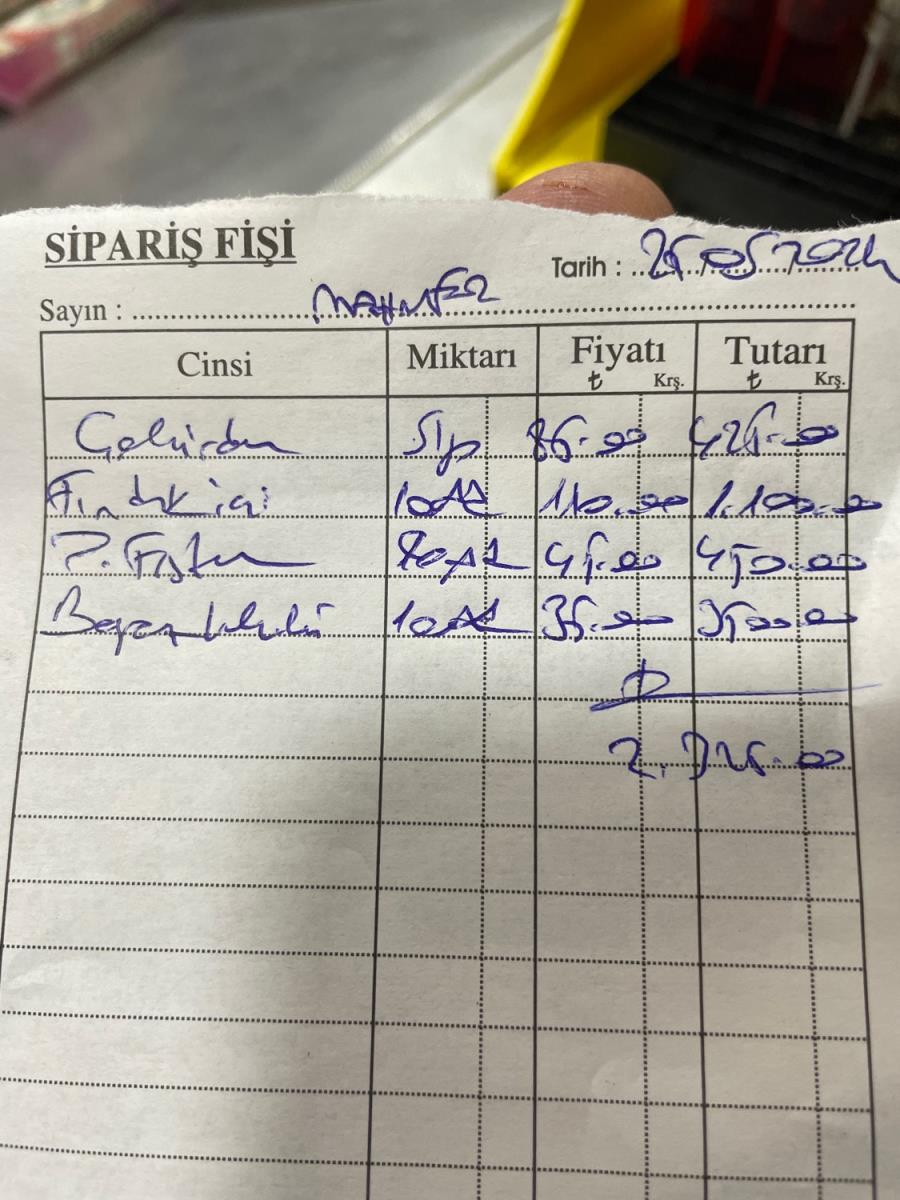 SİPARİŞ FİŞİ
Tarih : 25/05/2024
Sayın :
Cinsi Miktarı Fiyatı Tutarı
₺ Krş. ₺ Krş.
Çekirdek 5 85.00 425.00
Fındık içi 10 110.00 1.100.00
P. Fıstık 45.00 450.00
Beyaz leblebi 10 35.00 350.00
2.325.00